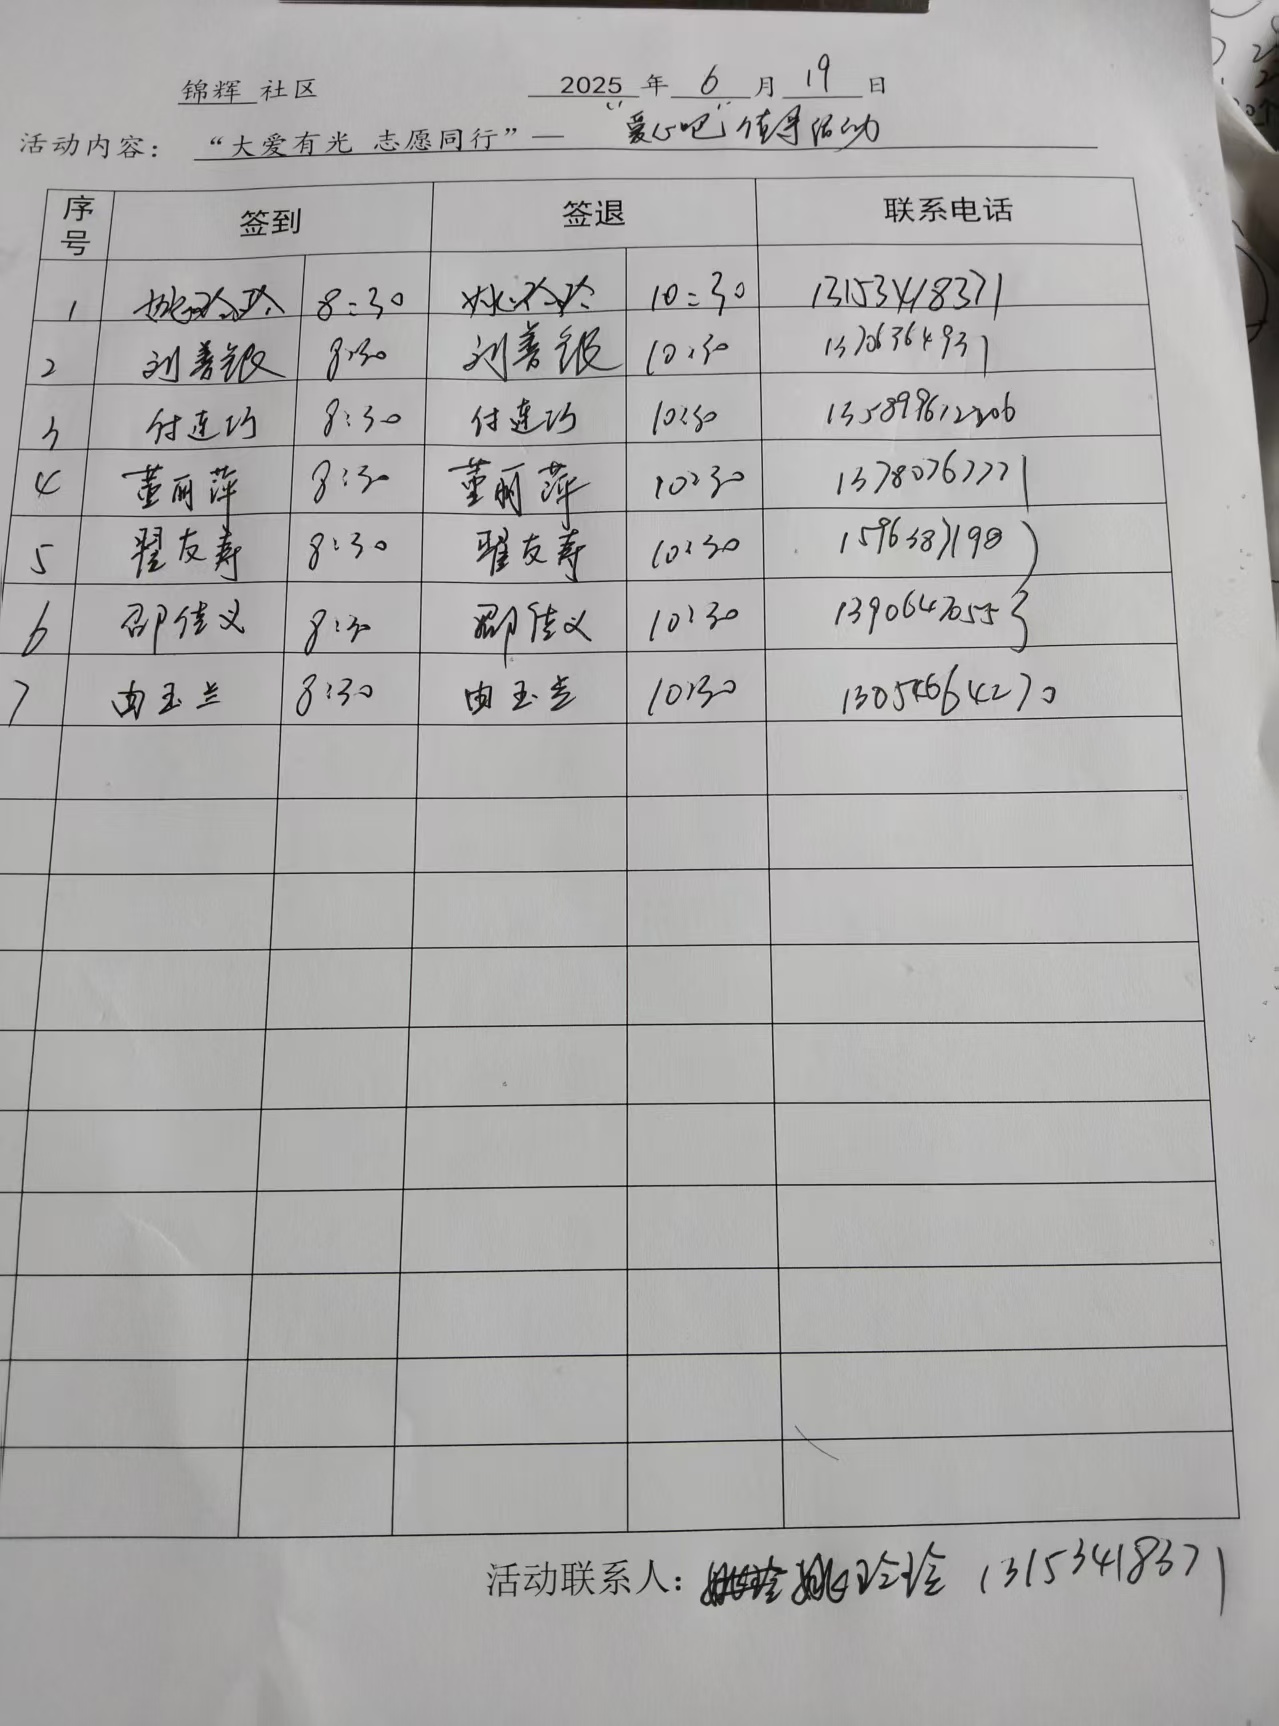 锦辉 社区 2025 年 6 月 19 日
活动内容： “大爱有光 志愿同行”— “爱心吧”值寻活动
序号 签到 签退 联系电话
1 姚玲玲 8:30 姚玲玲 10:30 13153418371
2 刘善银 8:30 刘善银 10:30 13706364931
3 付连巧 8:30 付连巧 10:30
4 董丽萍 8:30 董丽萍 10:30 13780767771
5 翟友寿 8:30 翟友寿 10:30
6 邵佳义 8:30 邵佳义 10:30 13906470553
7 由玉兰 8:30 由玉兰 10:30 13054664270
活动联系人： 姚玲玲 13153418371